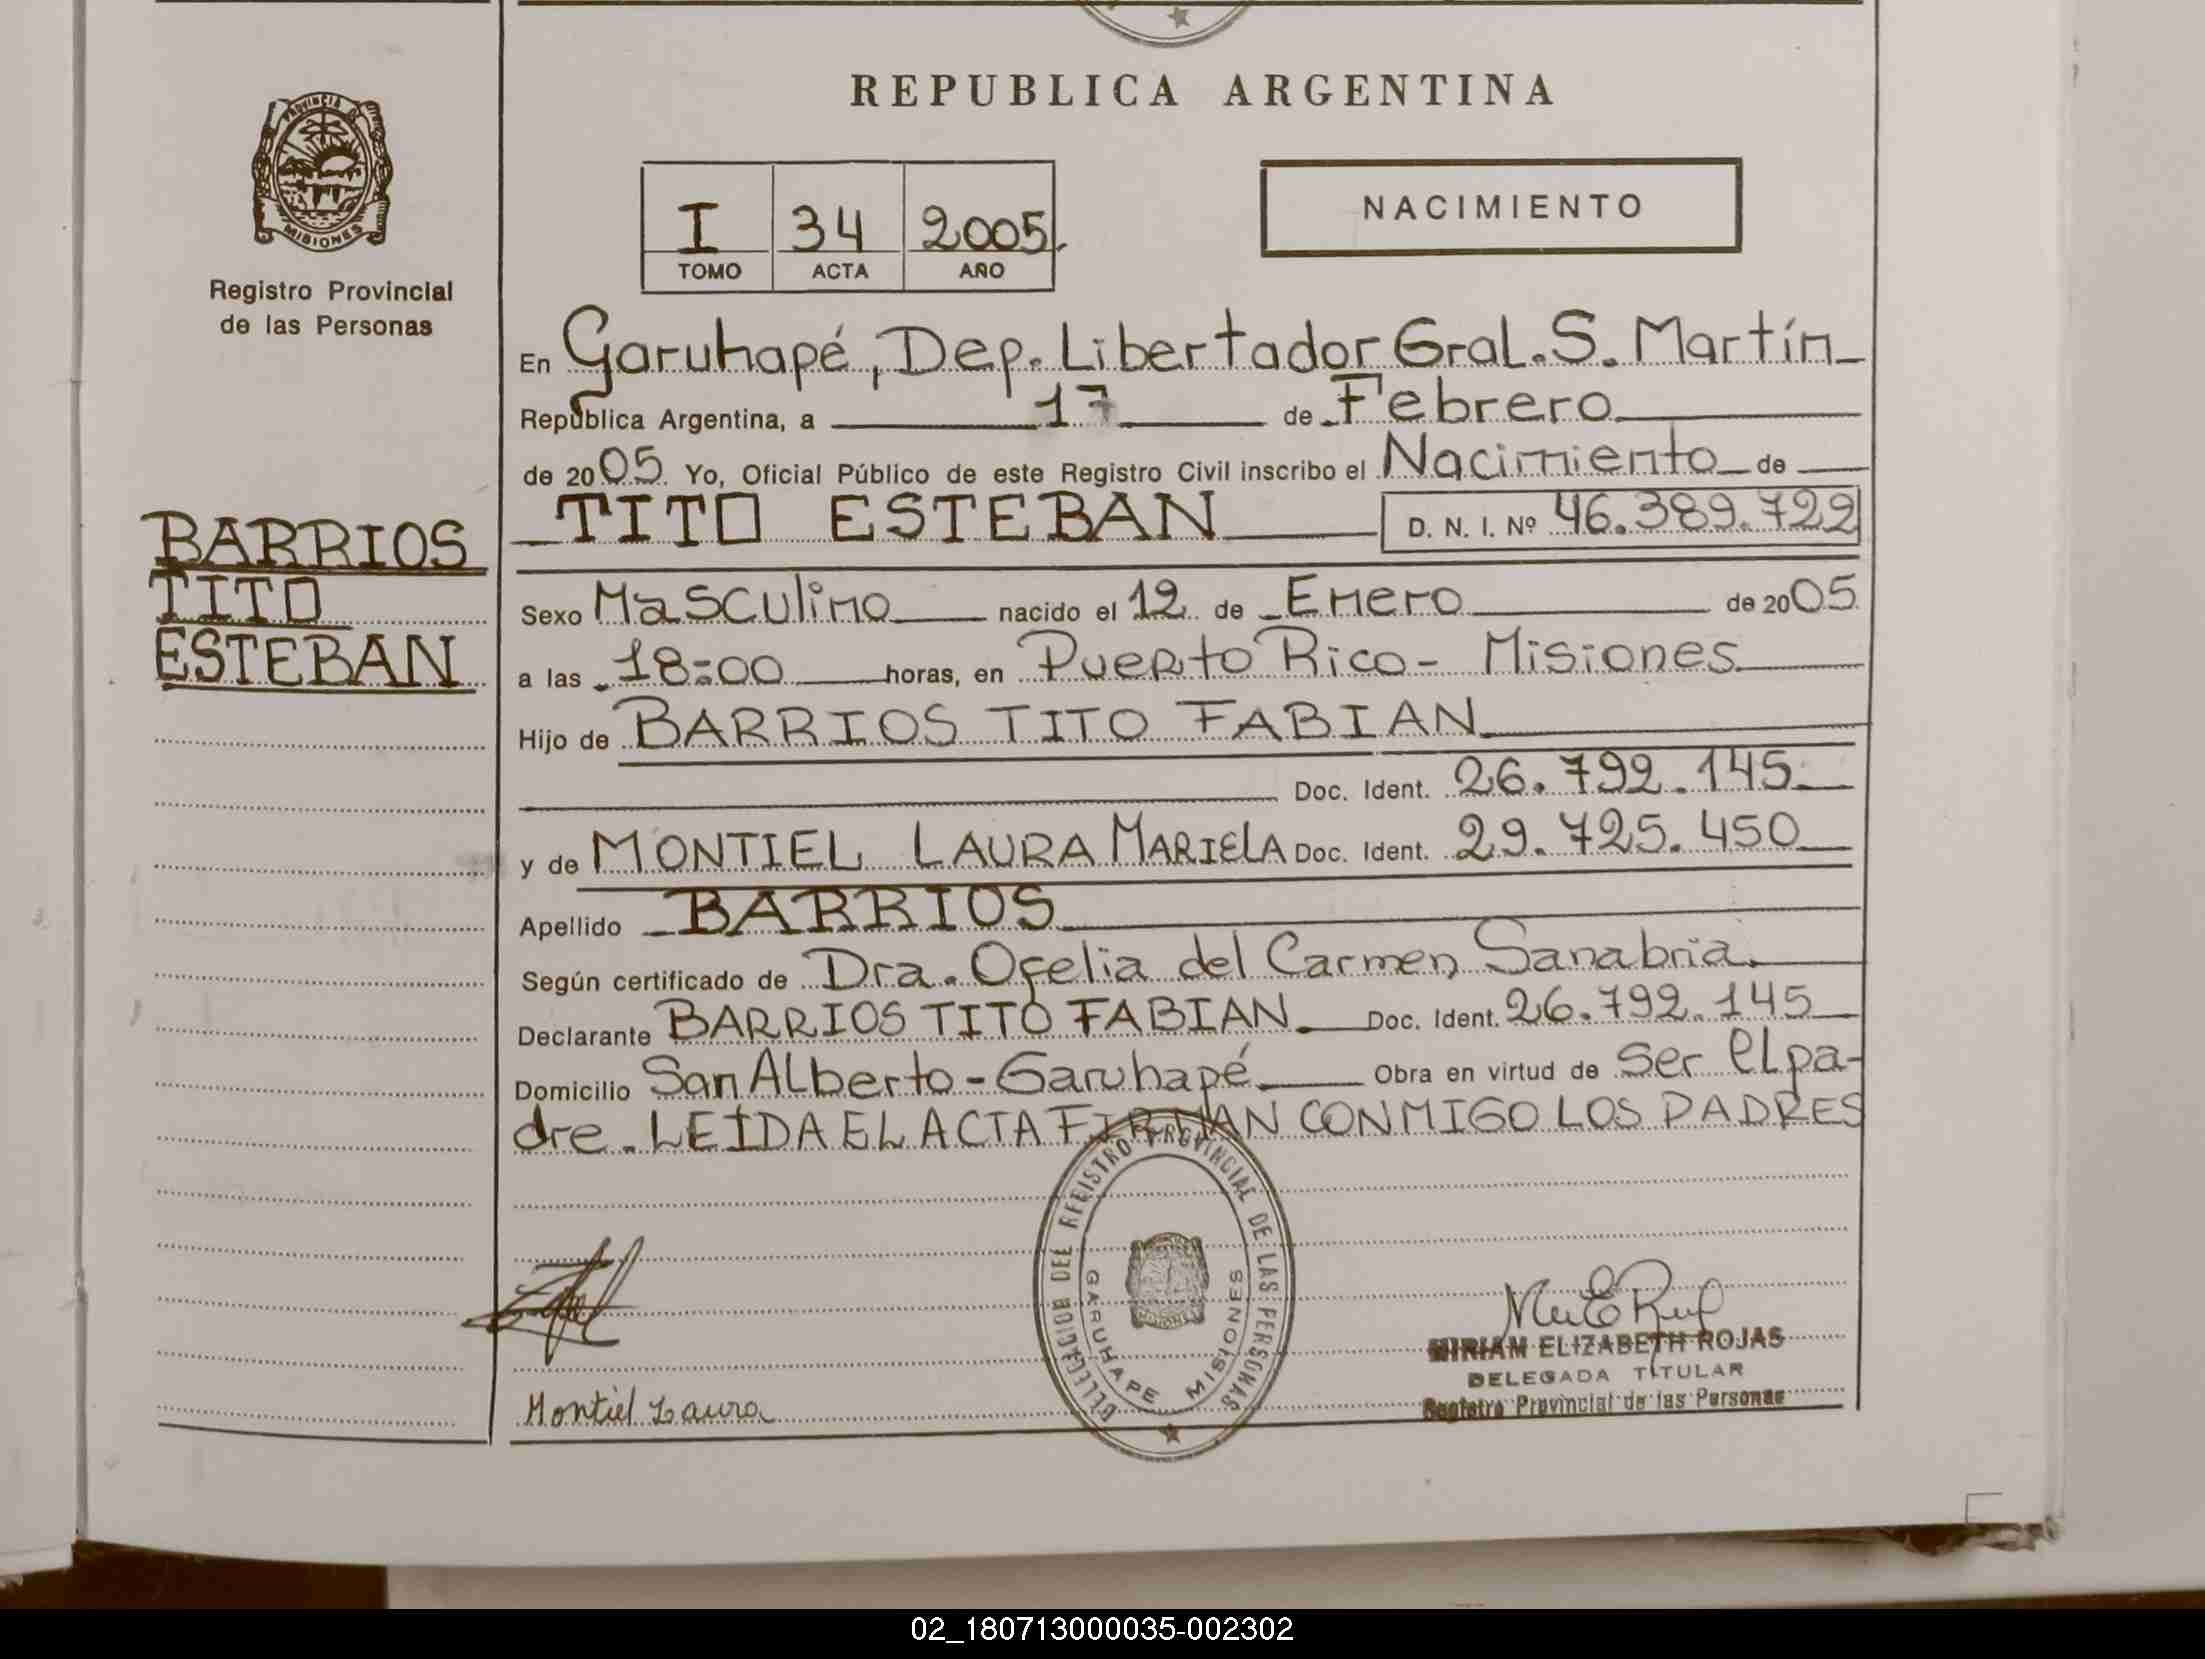 REPUBLICA ARGENTINA
PROVINCIA DE
MISIONES
Registro Provincial
de las Personas
I 34 2005
TOMO ACTA AÑO
NACIMIENTO
En Garuhapé, Dep. Libertador Gral. S. Martín
República Argentina, a 17 de Febrero
de 2005 Yo, Oficial Público de este Registro Civil inscribo el Nacimiento de
BARRIOS
TITO
ESTEBAN
TITO ESTEBAN D. N. I. Nº 46.389.722
Sexo Masculino nacido el 12 de Enero de 2005
a las 18:00 horas, en Puerto Rico - Misiones
Hijo de BARRIOS TITO FABIAN
Doc. Ident. 26.792.145
y de MONTIEL LAURA MARIELA Doc. Ident. 29.725.450
Apellido BARRIOS
Según certificado de Dra. Ofelia del Carmen Sanabria.
Declarante BARRIOS TITO FABIAN. Doc. Ident. 26.792.145
Domicilio San Alberto - Garuhapé Obra en virtud de ser el pa-
dre. LEIDA EL ACTA FIRMAN CONMIGO LOS PADRES
DELEGACION DEL REGISTRO PROVINCIAL DE LAS PERSONAS
GARUHAPE MISIONES
Montiel Laura
MIRIAM ELIZABETH ROJAS
DELEGADA TITULAR
Registro Provincial de las Personas
02_180713000035-002302